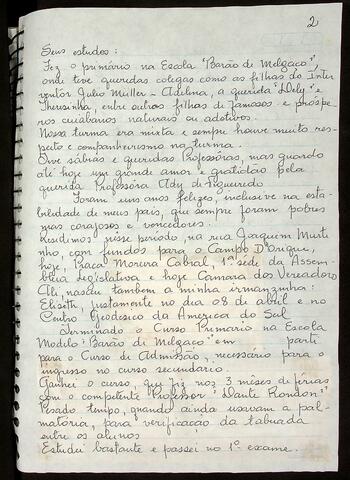 2
Seus estudos:
Fez o primário na Escola "Barão de Melgaço",
onde teve queridas colegas como as filhas do Inter
ventor Julio Müller - Adelina, a querida "Dely" e
Theresinha, entre outros filhos de famosos e próspe
ros cuiabanos naturais ou adotivos.
Nossa turma era mixta e sempre houve muito res-
peito e companheirismo na turma.
Tive sábias e queridas Professoras, mas guardo
até hoje um grande amor e gratidão pela
querida Professora Ady de Figueiredo.
Foram uns anos felizes, inclusive na esta-
bilidade de meus pais, que sempre foram pobres
mas corajosos e vencedores.
Residimos nesse período, na rua Joaquim Murti
nho, com fundos para o Campo D'Ourique,
hoje, Praça Moreira Cabral, 1ª sede da Assem-
bleia Legislativa e hoje Câmara dos Vereadores
Ali nasceu também a minha irmanzinha:
Eliseth, justamente no dia 08 de abril e no
Centro Geodesico da America do Sul
Terminado o Curso Primario na Escola
Modelo "Barão de Melgaço" em parti
para o Curso de Admissão, necessário para o
ingresso no curso secundário.
Ganhei o curso, que fiz nos 3 mêses de férias
com o competente Professor "Dante Rondon"
Pesado tempo, quando ainda usavam a pal-
matória, para verificação da tabuada
entre os alunos
Estudei bastante e passei no 1º exame.